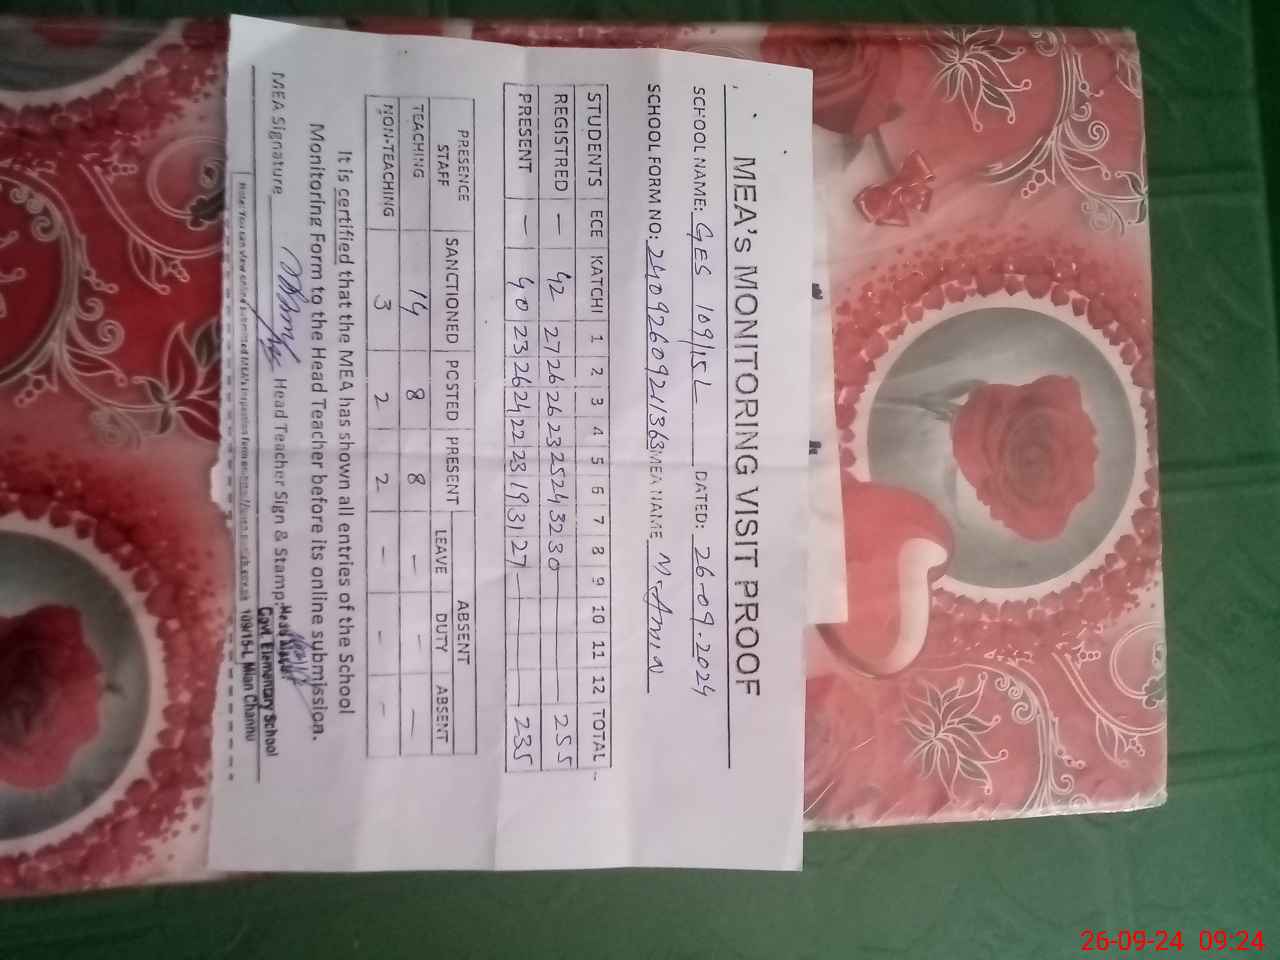 MEA's MONITORING VISIT PROOF
SCHOOL NAME: GES 109/15L DATED: 26-09-2024
SCHOOL FORM NO: 24092609211363 MEA NAME M-Amin
STUDENTS ECE KATCHI 1 2 3 4 5 6 7 8 9 10 11 12 TOTAL
REGISTRED — 42 27 26 26 23 25 24 32 30 255
PRESENT — 40 23 26 24 22 23 19 31 27 235
PRESENCE ABSENT
STAFF SANCTIONED POSTED PRESENT LEAVE DUTY ABSENT
TEACHING 14 8 8 — — —
NON-TEACHING 3 2 2 - - -
It is certified that the MEA has shown all entries of the School
Monitoring Form to the Head Teacher before its online submission.
MEA Signature Head Teacher Sign & Stamp:
Govt. Elementary School
109/15-L Mian Channu
Note: You can view online submitted MEA's Inspection form on
26-09-24 09:24